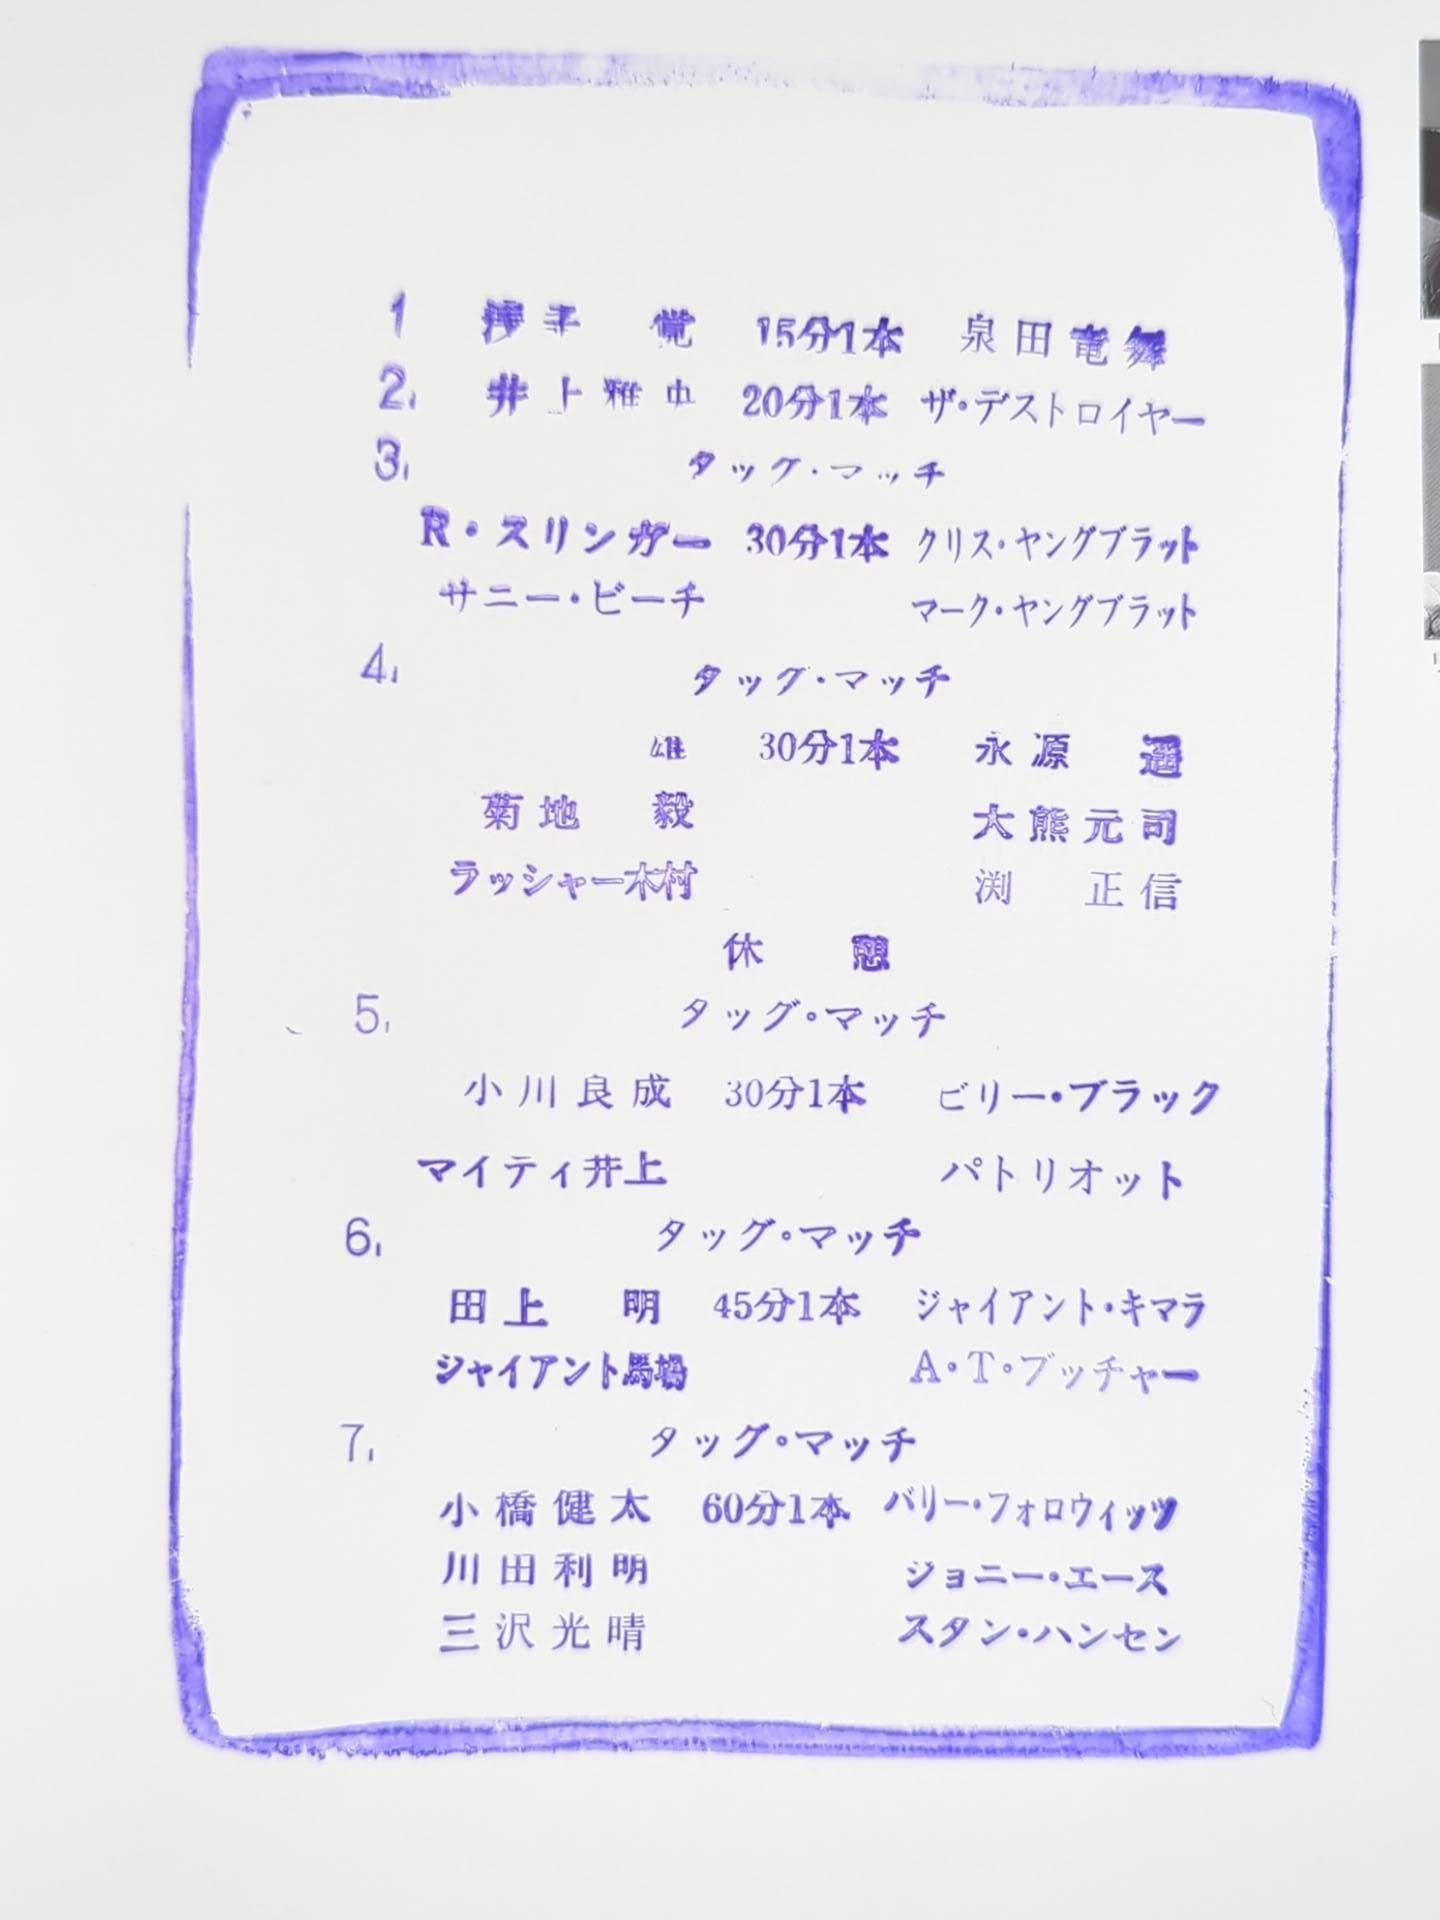 1 浅子 覚 15分1本 泉田竜舞
2. 井上雅央 20分1本 ザ・デストロイヤー
3. タッグ・マッチ
R・スリンガー 30分1本 クリス・ヤングブラット
サニー・ビーチ マーク・ヤングブラット
4. タッグ・マッチ
雄 30分1本 永源 遥
菊地 毅 大熊元司
ラッシャー木村 渕 正信
休 憩
5. タッグ・マッチ
小川良成 30分1本 ビリー・ブラック
マイティ井上 パトリオット
6. タッグ・マッチ
田上 明 45分1本 ジャイアント・キマラ
ジャイアント馬場 A・T・ブッチャー
7. タッグ・マッチ
小橋健太 60分1本 バリー・フォロウィッツ
川田利明 ジョニー・エース
三沢光晴 スタン・ハンセン